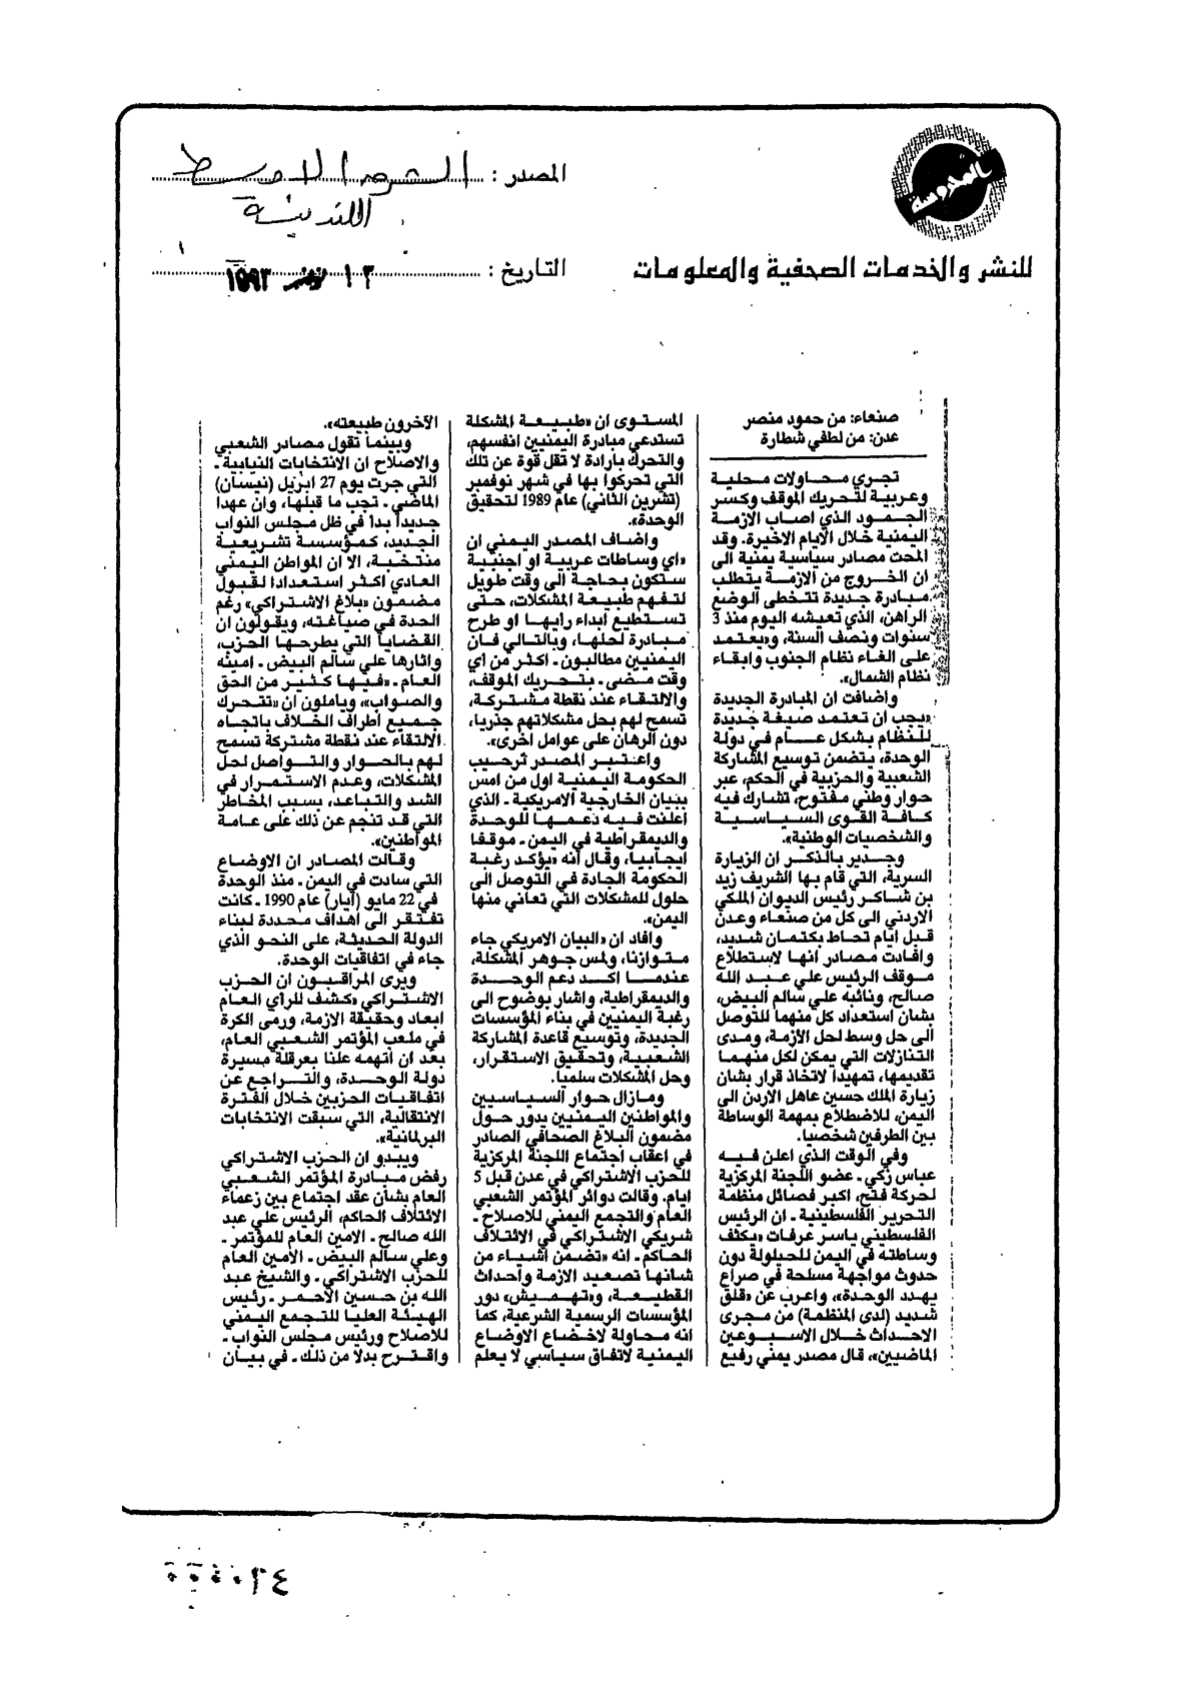 المحروسة
للنشر والخدمات الصحفية والمعلومات
المصدر : الشرق الأوسط
اللندنية
التاريخ : ١٩٩٣
صنعاء: من حمود منصر
عدن: من لطفي شطارة
تجري محاولات محلية
وعربية لتحريك الموقف وكسر
الجمود الذي اصاب الازمة
اليمنية خلال الايام الاخيرة. وقد
المحت مصادر سياسية يمنية الى
ان الخروج من الازمة يتطلب
مبادرة جديدة تتخطى الوضع
الراهن، الذي تعيشه اليوم منذ 3
سنوات ونصف السنة، و«يعتمد
على الغاء نظام الجنوب وابقاء
نظام الشمال».
واضافت ان المبادرة الجديدة
«يجب ان تعتمد صيغة جديدة
للنظام بشكل عام في دولة
الوحدة، يتضمن توسيع المشاركة
الشعبية والحزبية في الحكم، عبر
حوار وطني مفتوح، تشارك فيه
كافة القوى السياسية
والشخصيات الوطنية».
وجدير بالذكر ان الزيارة
السرية، التي قام بها الشريف زيد
بن شاكر رئيس الديوان الملكي
الاردني الى كل من صنعاء وعدن
قبل ايام تحاط بكتمان شديد،
وافادت مصادر انها لاستطلاع
موقف الرئيس علي عبد الله
صالح، ونائبه علي سالم البيض،
بشان استعداد كل منهما للتوصل
الى حل وسط لحل الازمة، ومدى
التنازلات التي يمكن لكل منهما
تقديمها، تمهيدا لاتخاذ قرار بشان
زيارة الملك حسين عاهل الاردن الى
اليمن، للاضطلاع بمهمة الوساطة
بين الطرفين شخصيا.
وفي الوقت الذي اعلن فيه
عباس زكي ـ عضو اللجنة المركزية
لحركة فتح، اكبر فصائل منظمة
التحرير الفلسطينية ـ ان الرئيس
الفلسطيني ياسر عرفات «يكثف
وساطته في اليمن للحيلولة دون
حدوث مواجهة مسلحة في صراع
يهدد الوحدة»، واعرب عن «قلق
شديد (لدى المنظمة) من مجرى
الاحداث خلال الاسبوعين
الماضيين»، قال مصدر يمني رفيع
المستوى ان «طبيعة المشكلة
تستدعي مبادرة اليمنيين انفسهم،
والتحرك بارادة لا تقل قوة عن تلك
التي تحركوا بها في شهر نوفمبر
(تشرين الثاني) عام 1989 لتحقيق
الوحدة».
واضاف المصدر اليمني ان
«اي وساطات عربية او اجنبية
ستكون بحاجة الى وقت طويل
لتفهم طبيعة المشكلات، حتى
تستطيع ابداء رايها او طرح
مبادرة لحلها، وبالتالي فان
اليمنيين مطالبون ـ اكثر من اي
وقت مضى ـ بتحريك الموقف،
والالتقاء عند نقطة مشتركة،
تسمح لهم بحل مشكلاتهم جذريا،
دون الرهان على عوامل اخرى».
واعتبر المصدر ترحيب
الحكومة اليمنية اول من امس
ببيان الخارجية الامريكية ـ الذي
اعلنت فيه دعمها للوحدة
والديمقراطية في اليمن ـ موقفا
ايجابيا، وقال انه «يؤكد رغبة
الحكومة الجادة في التوصل الى
حلول للمشكلات التي تعاني منها
اليمن».
وافاد ان «البيان الامريكي جاء
متوازنا، ولمس جوهر المشكلة،
عندما اكد دعم الوحدة
والديمقراطية، واشار بوضوح الى
رغبة اليمنيين في بناء المؤسسات
الجديدة، وتوسيع قاعدة المشاركة
الشعبية، وتحقيق الاستقرار،
وحل المشكلات سلميا.
ومازال حوار السياسيين
والمواطنين اليمنيين يدور حول
مضمون البلاغ الصحافي الصادر
في اعقاب اجتماع اللجنة المركزية
للحزب الاشتراكي في عدن قبل 5
ايام. وقالت دوائر المؤتمر الشعبي
العام والتجمع اليمني للاصلاح ـ
شريكي الاشتراكي في الائتلاف
الحاكم ـ انه «تضمن اشياء من
شانها تصعيد الازمة واحداث
القطيعة، و«تهميش» دور
المؤسسات الرسمية الشرعية، كما
انه محاولة لاخضاع الاوضاع
اليمنية لاتفاق سياسي لا يعلم
الآخرون طبيعته».
وبينما تقول مصادر الشعبي
والاصلاح ان الانتخابات النيابية ـ
التي جرت يوم 27 ابريل (نيسان)
الماضي ـ تجب ما قبلها، وان عهدا
جديدا بدا في ظل مجلس النواب
الجديد، كمؤسسة تشريعية
منتخبة، الا ان المواطن اليمني
العادي اكثر استعدادا لقبول
مضمون «بلاغ الاشتراكي» رغم
الحدة في صياغته، ويقولون ان
القضايا التي يطرحها الحزب،
واثارها علي سالم البيض ـ امينه
العام ـ «فيها كثير من الحق
والصواب»، وياملون ان «تتحرك
جميع اطراف الخلاف باتجاه
الالتقاء عند نقطة مشتركة تسمح
لهم بالحوار والتواصل لحل
المشكلات، وعدم الاستمرار في
الشد والتباعد، بسبب المخاطر
التي قد تنجم عن ذلك على عامة
المواطنين».
وقالت المصادر ان الاوضاع
التي سادت في اليمن ـ منذ الوحدة
في 22 مايو (أيار) عام 1990 ـ كانت
تفتقر الى اهداف محددة لبناء
الدولة الحديثة، على النحو الذي
جاء في اتفاقيات الوحدة.
ويرى المراقبون ان الحزب
الاشتراكي «كشف للرأي العام
ابعاد وحقيقة الازمة، ورمى الكرة
في ملعب المؤتمر الشعبي العام،
بعد ان اتهمه علنا بعرقلة مسيرة
دولة الوحدة، والتراجع عن
اتفاقيات الحزبين خلال الفترة
الانتقالية، التي سبقت الانتخابات
البرلمانية».
ويبدو ان الحزب الاشتراكي
رفض مبادرة المؤتمر الشعبي
العام بشان عقد اجتماع بين زعماء
الائتلاف الحاكم، الرئيس علي عبد
الله صالح ـ الامين العام للمؤتمر ـ
وعلي سالم البيض ـ الامين العام
للحزب الاشتراكي ـ والشيخ عبد
الله بن حسين الاحمر ـ رئيس
الهيئة العليا للتجمع اليمني
للاصلاح ورئيس مجلس النواب ـ
واقترح بدلا من ذلك ـ في بيان